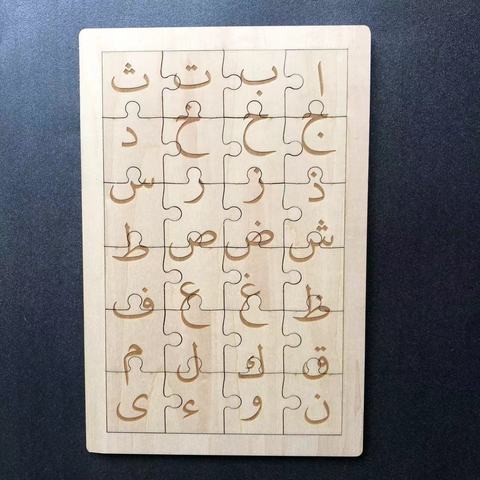 ا ب ت ث
ج ح خ د
ذ ز ر س
ش ض ص ط
ظ غ ع ف
ق ك ل م
ن و ء ى